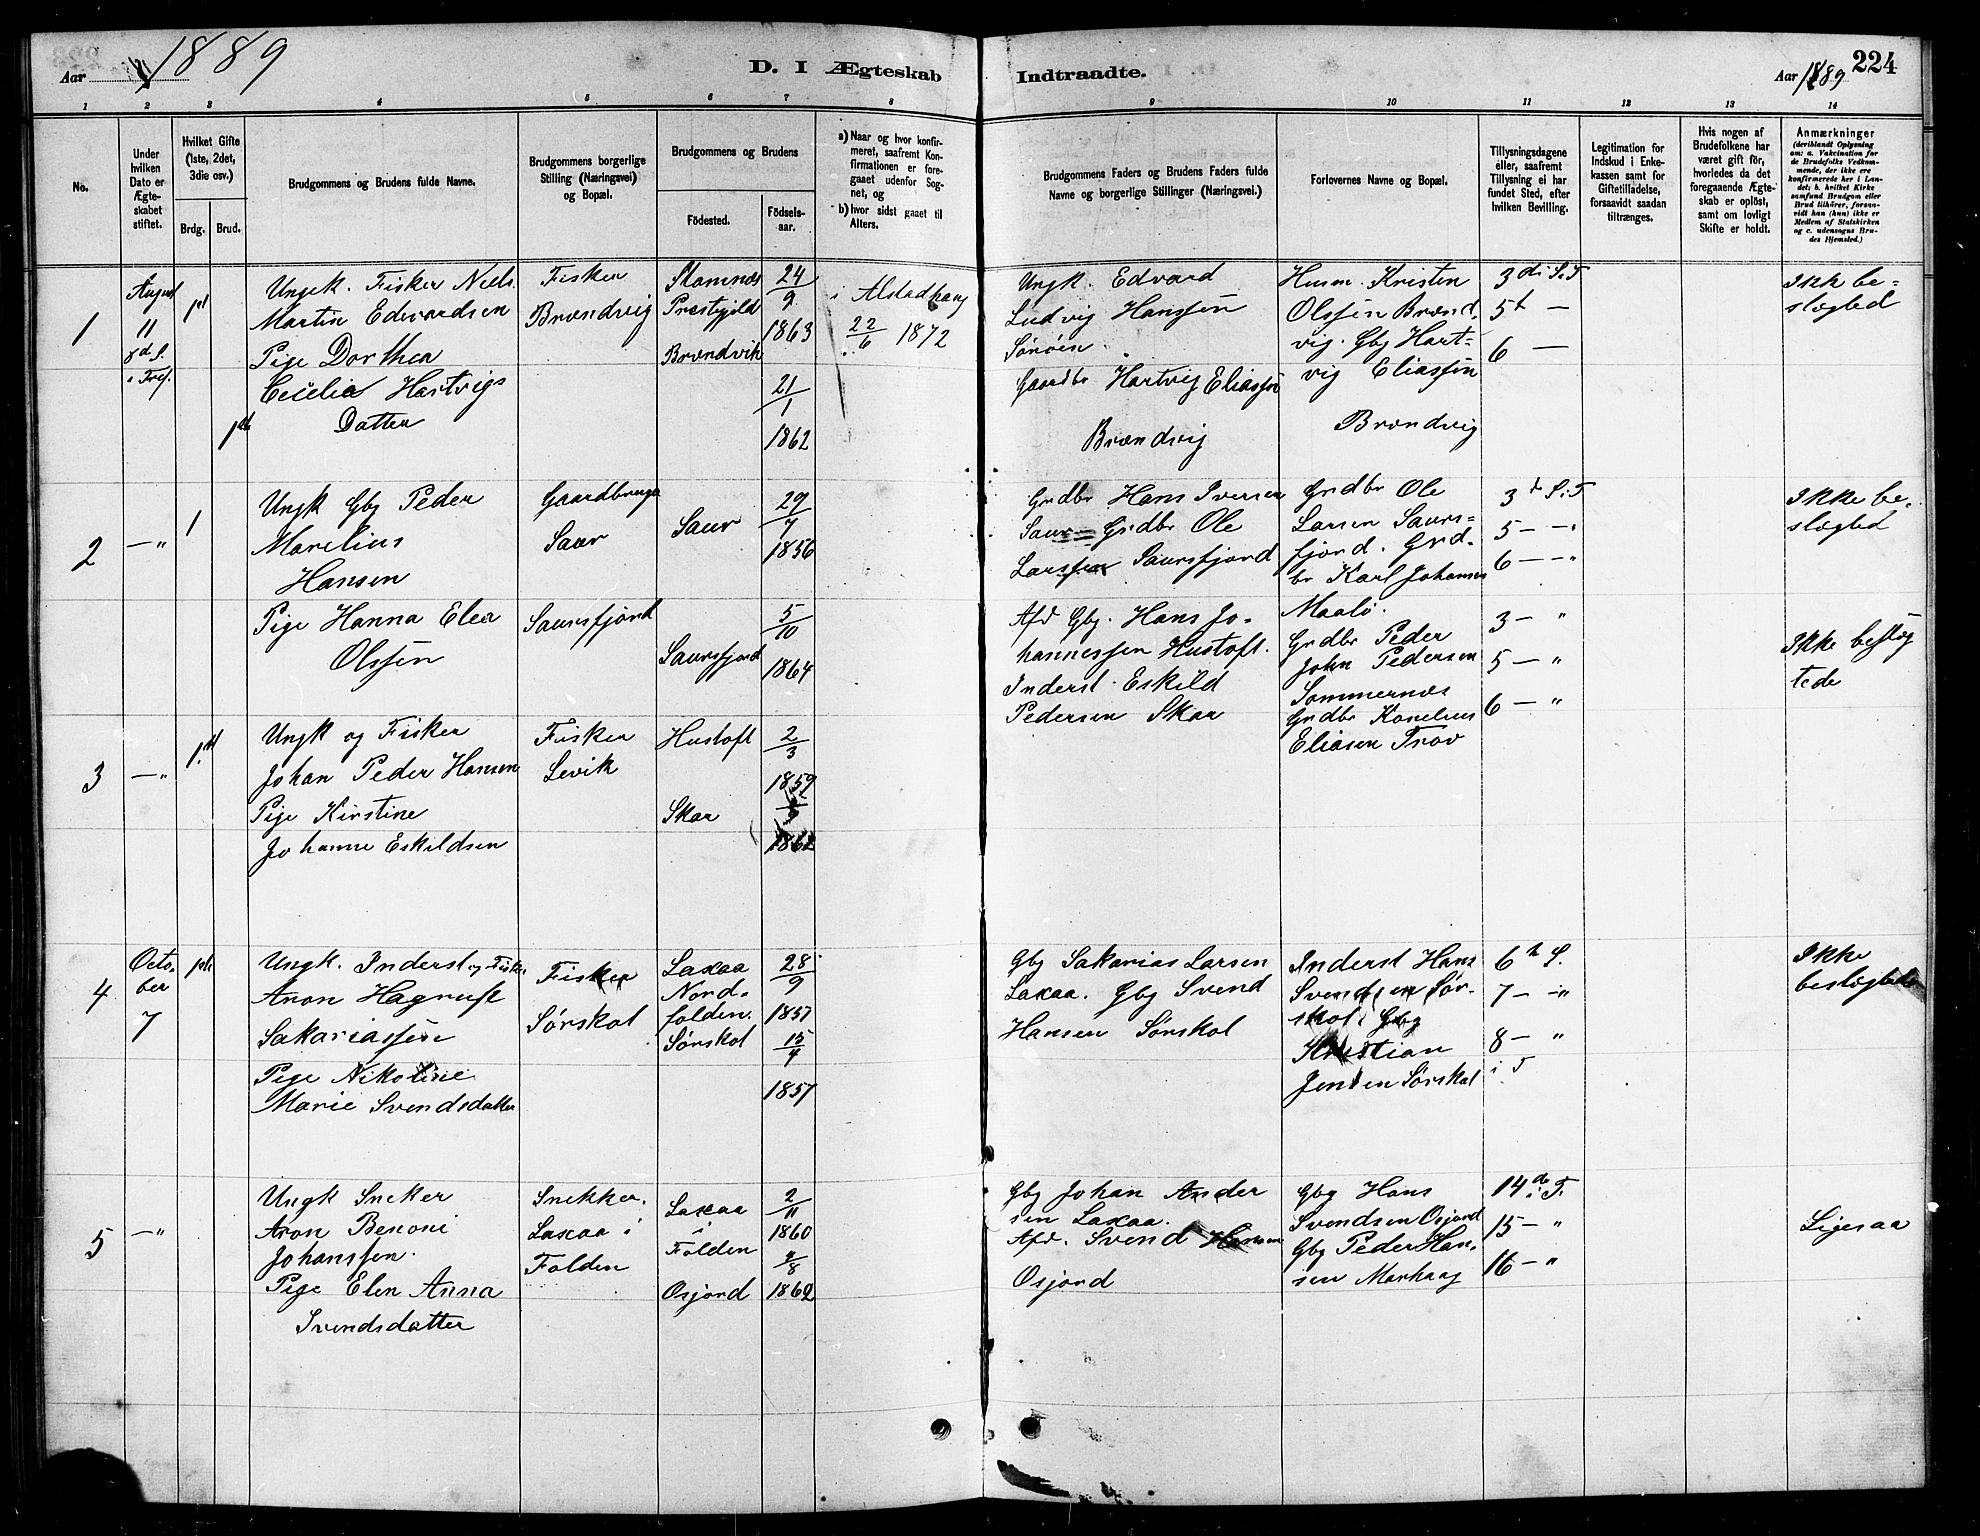 Aar 1889
D. I Ægteskab
Indtraadte.
Aar 1889
224
1 2 3 4 5 6 7 8 9 10 11 12 13 14
No.
Under
hvilken
Dato er
Ægte-
skabet
stiftet.
Hvilket Gifte
(1ste, 2det,
3die osv.)
Brdg. Brud.
Brudgommens og Brudens fulde Navne.
Brudgommens borgerlige
Stilling (Næringsvei)
og Bopæl.
Brudgommens og Brudens
Födested.
Födsels-
aar.
a) Naar og hvor konfir-
meret, saafremt Kon-
firmationen er fore-
gaaet udenfor Sog-
net, og
b) hvor sidst gaaet til
Alters.
Brudgommens Faders og Brudens Faders fulde
Navne og borgerlige Stillinger (Næringsvei.)
Forlovernes Navne og Bopæl.
Tillysningsdagene
eller, saafremt
Tillysning ei har
fundet Sted, efter
hvilken Bevilling.
Legitimation for
Indskud i Enke-
kassen samt for
Giftetilladelse,
forsaavidt saadan
tiltrænges.
Hvis nogen af
Brudefolkene har
været gift för,
hvorledes da det
foregaaende Ægte-
skab er oplöst,
samt om lovligt
Skifte er holdt.
Anmærkninger
(deriblandt Oplysning
om: a. Vakcination for
de Brudefolks Vedkom-
mende, der ikke ere
konfirmerede her i Lan-
det; b. hvilket Kirke
samfund Brudgom eller
Brud tilhörer, forsaa-
vidt han (hun) ikke er
Medlem af Statskirken
og c. udensogns Bru-
des Hjemsted.)
1
August
11
1st
Ungk. Fisker Niels
Martin Edvardsen
Pige Dorthea
Cecelia Hartvigs
Datter
Fisker
Brændvig
Stamnæs
Prestegjeld
Brændvik
24/9
1863
21/1
1862
i Alstadhaug
22/6 1872
Ungk. Edvard
Ludvig Hanssen
Sønøen
Gaardbr Hartvig Eliassen
Brændvig
Husm. Kristen
Olssen Brænd.
vig. Gbg Hart=
vig Eliassen
Brændvig
3 di S. i T
5t —
6 —
Ikk be=
slægted
2
—"
1
Ungk Gbg Peder
Marelius
Hansen
Pige Hanna Elea
Olssen
Gaardbruger
Saur
Saursfjord
Saur
Saursfjord
29/7
1856
5/10
1864
Grdbr Hans Iversen
Saur Grdbr Ole
Larssen Saursfjord
Grdbr Ole
Larsen Saurs=
fjord. Grd.
br Karl Johanns
Maalö.
3 d S. i T
5 — "
6 — "
Ikke be.
slægted
3
—"
1st
Ungk og Fisker
Johan Peder Hansen
Pige Kirstine
Johanne Eskildsen
Fisker
Levik
Hustoft
Skar
2/3
1859
1862
Afd Gbg. Hans Jo-
hannessen Hustoft.
Inderst Eskild
Pedersen Skar
Grdbr Peder
John Pedersen
Sommernæs
Grdbr Konelius
Eliasen Trøv
3 — "
5 — "
6 — "
Ikke beslæg
tede
4
Octo-
ber
7
Ungk. Inderst og Fisker
Aron Hagnust
Sakariassen
Pige Nikoline
Marie Svendsdatter
Fisker
Sørskot
Laxaa
Nord-
folden.
Sørskot
28/9
1857
15/4
1857
Gbg Sakarias Larsen
Laxaa. Gbg Svend
Hansen Sørskot
Inderst Hans
Svendsen Sør-
skot. Gbg
Kristian
Jensen Sørskot
6 t S.
7 — "
8 — "
i T
Ikke
beslægtede
5
—"
Ungk Sneker
Aron Benoni
Johanssen.
Pige Elen Anna
Svendsdatter
Snekker.
Laxaa i
Folden
Laxaa
i
Folden
Osjord
2/11
1860
7/8
1862
Gbg Johan Ander
sen Laxaa.
Afd. Svend Hansen
Osjord
Gbg Hans
Svendsen Osjord
Gbg Peder Han.
sen Marhaug
14 d i T.
15 — "
16 — "
Ligesaa